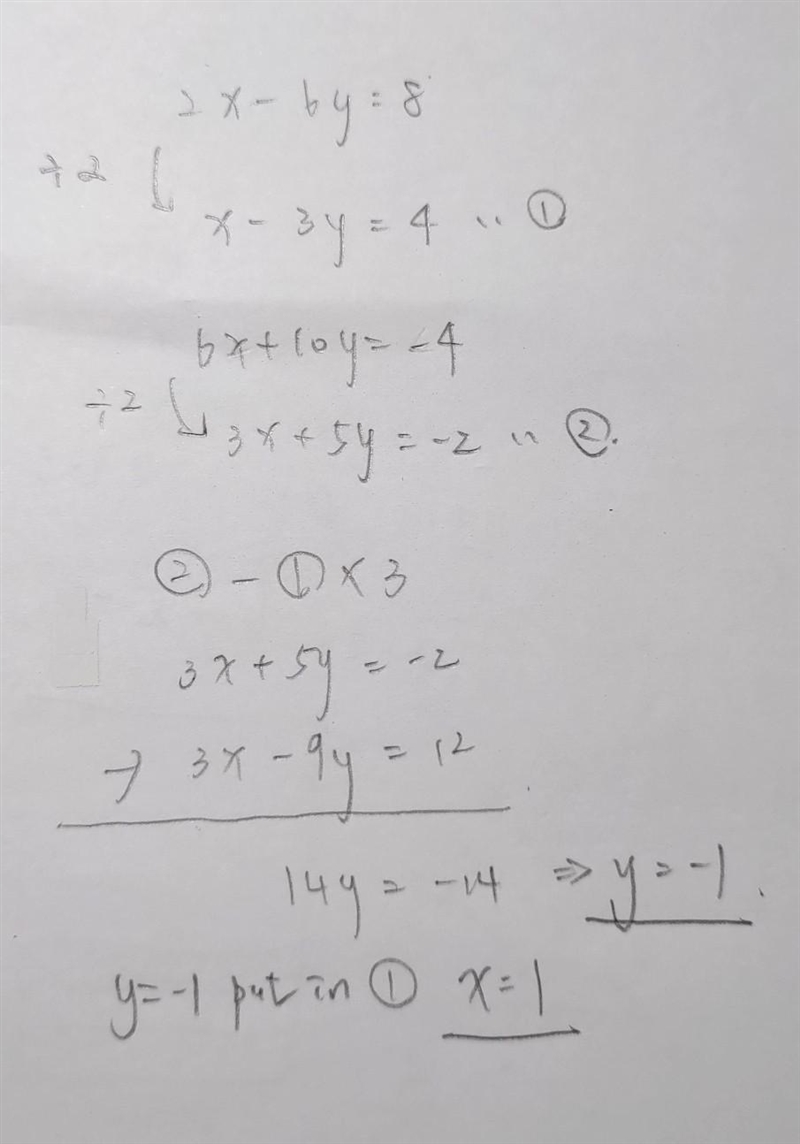 2x - 6y = 8
÷2
x - 3y = 4 ‥ ①
6x + 10y = -4
÷2
3x + 5y = -2 ‥ ②.
② - ① × 3
3x + 5y = -2
-) 3x - 9y = 12
14y = -14 ⇒ y = -1.
y = -1 put in ① x = 1